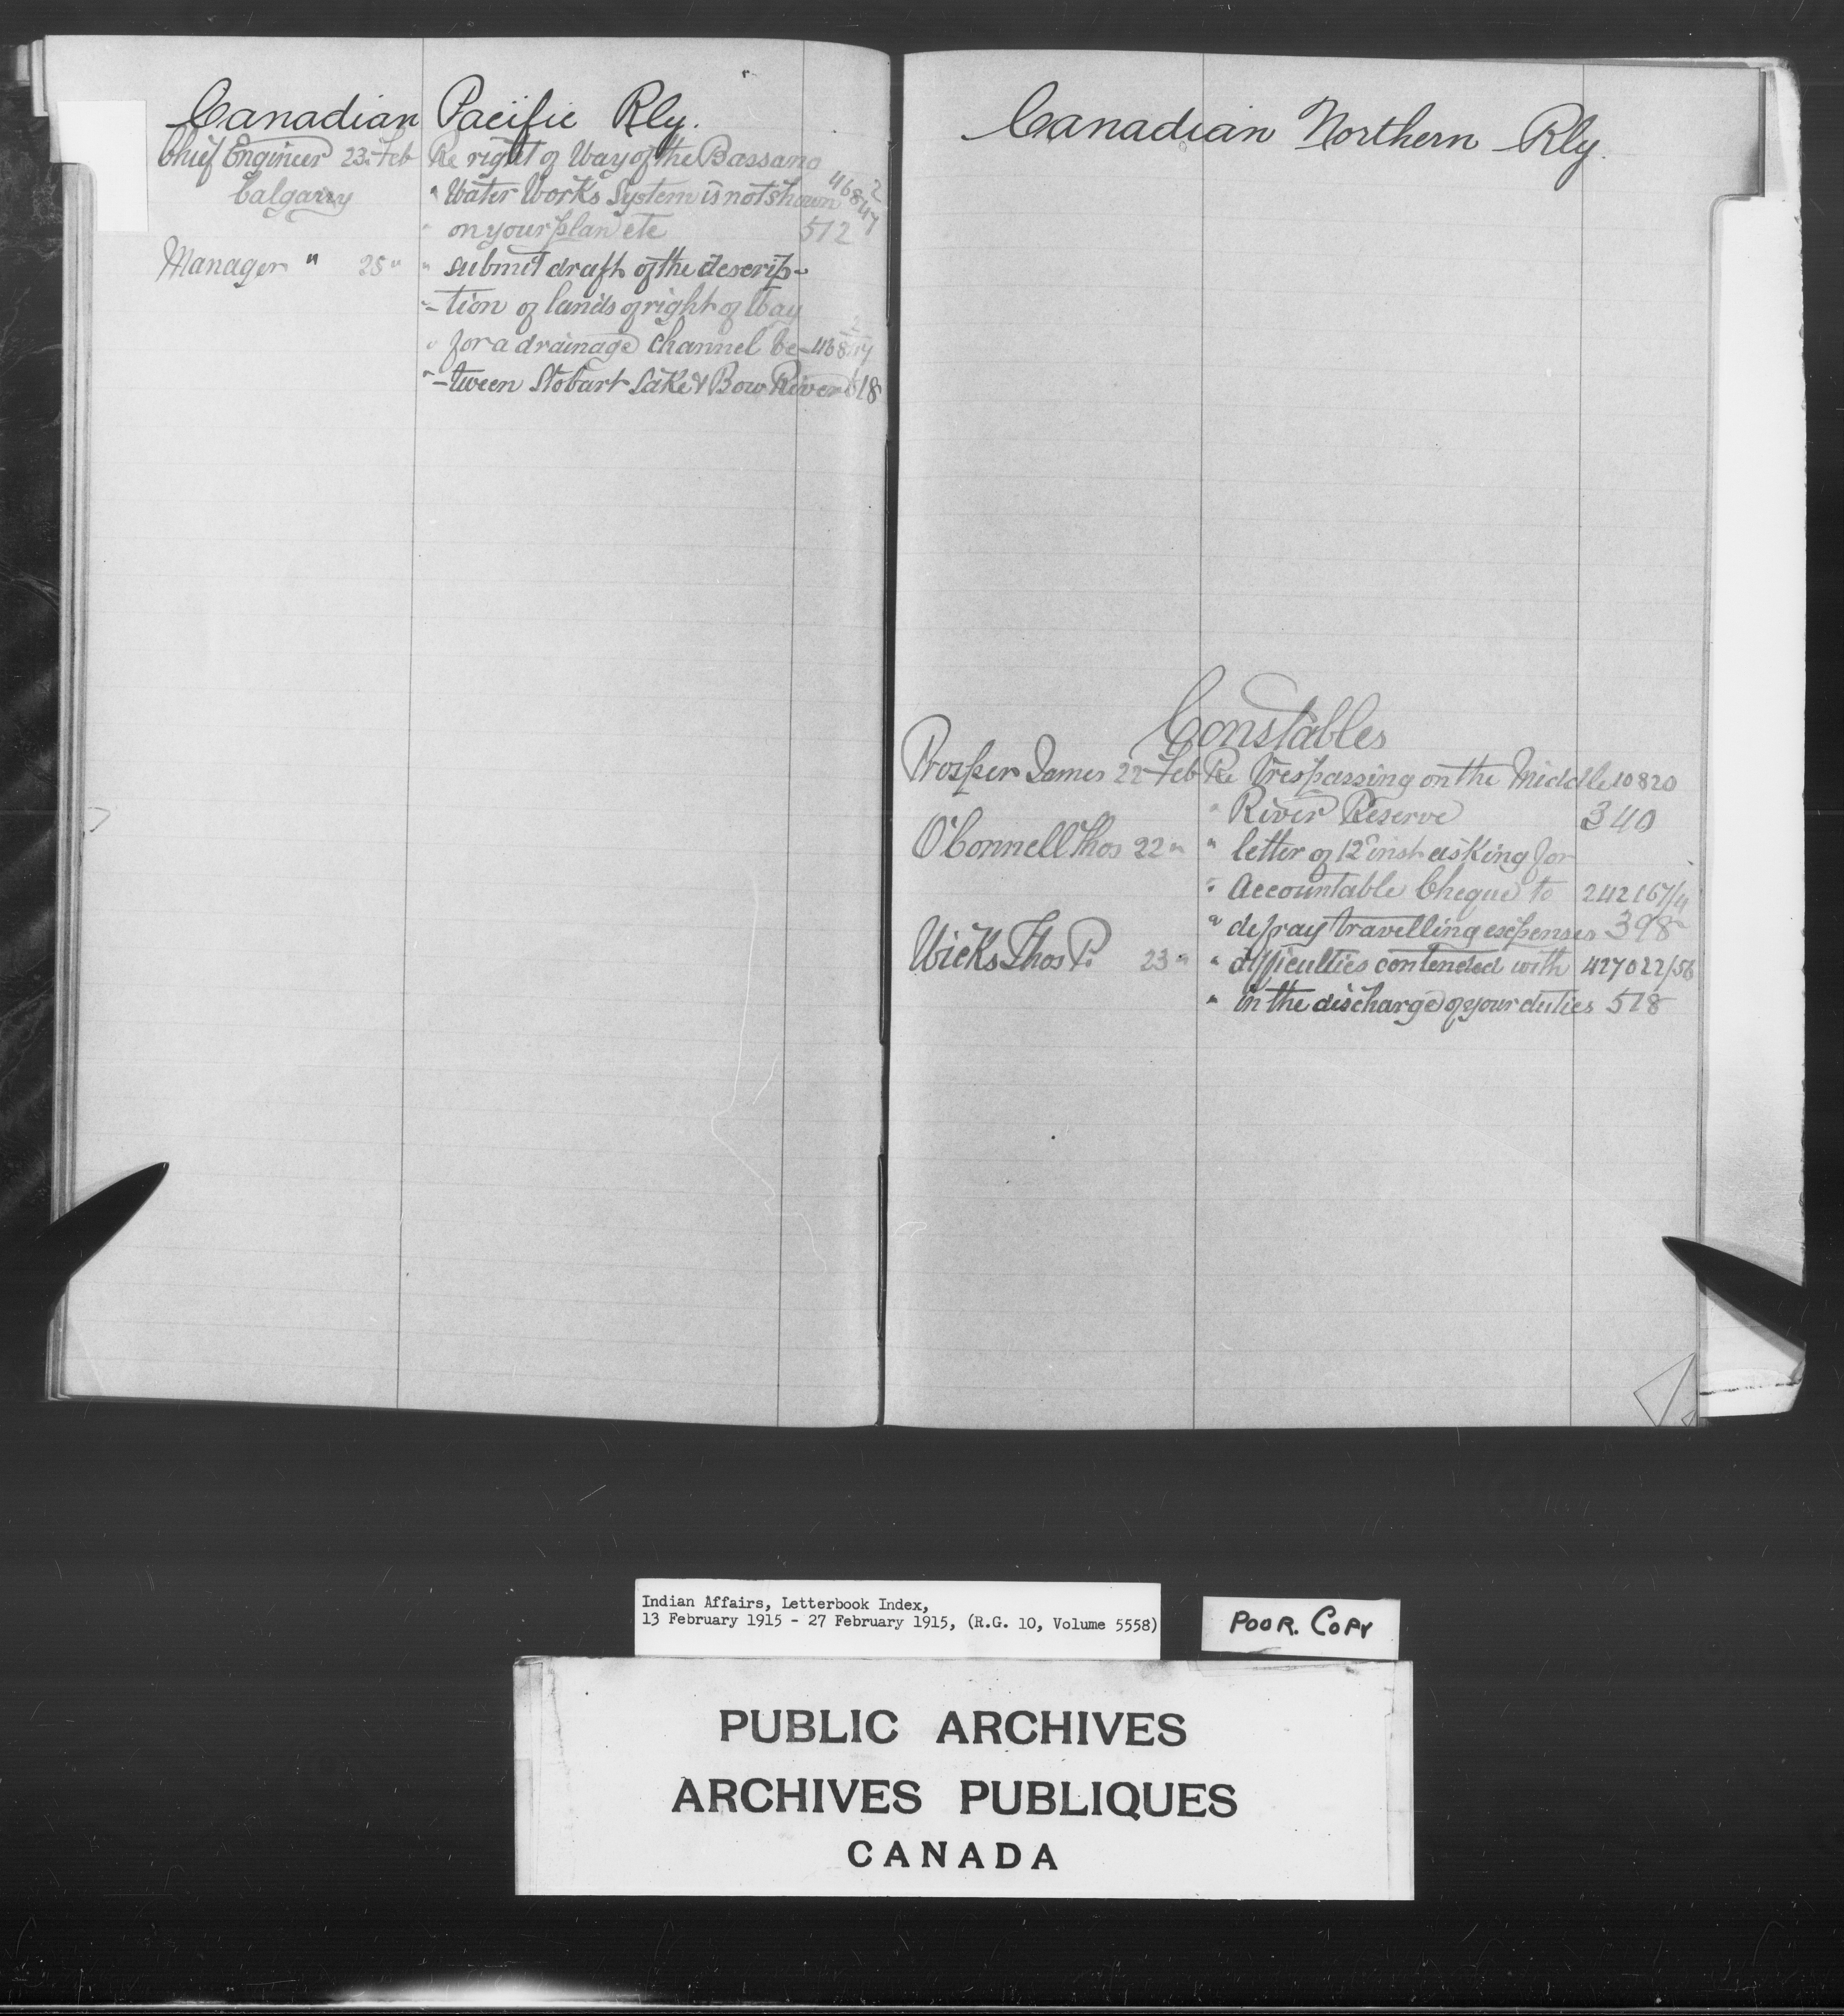 Canadian Pacific Rly.
Chief Engineer 23 Feb Re right of Way of the Bassano
Calgarry " Water Works System is not shown 46847 2
" on your plan etc 512
Manager " 25 " " submit draft of the descrip-
" -tion of lands of right of Way
" for a drainage channel be- 46847 2
" -tween Stobart Lake & Bow River 518
Canadian Northern Rly.
Constables
Prosper James 22 Feb Re Trespassing on the Middle 10820
" River Reserve 340
O'Connell Thos 22 " " letter of 12 inst asking for
" Accountable Cheque to 242167/4
" defray travelling expenses 398
Wicks Thos P. 23 " " difficulties contended with 427022/56
" in the discharge of your duties 518
Indian Affairs, Letterbook Index,
13 February 1915 - 27 February 1915, (R.G. 10, Volume 5558)
POOR. COPY
PUBLIC ARCHIVES
ARCHIVES PUBLIQUES
CANADA